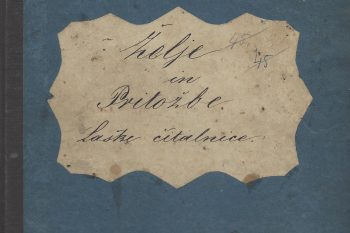 Želje 45
45
in
Pritožbe
laške čitalnice.